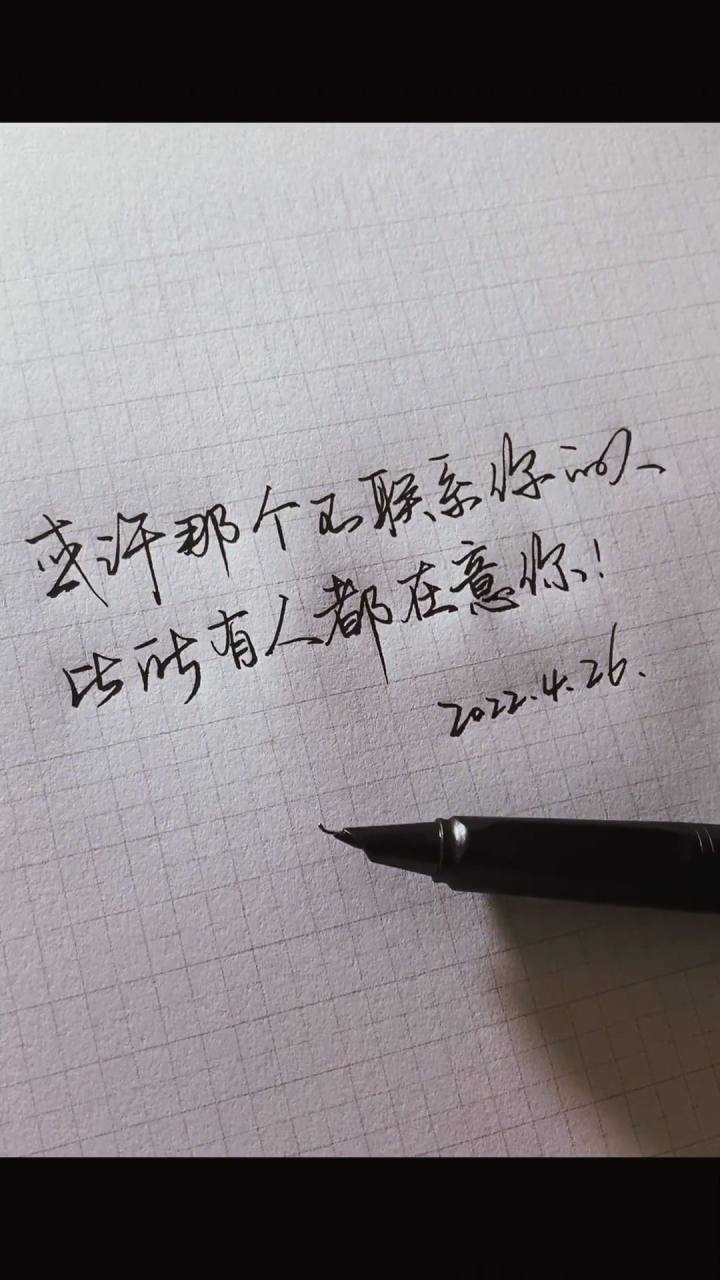 或许那个不联系你的人
比所有人都在意你!
2022.4.26.